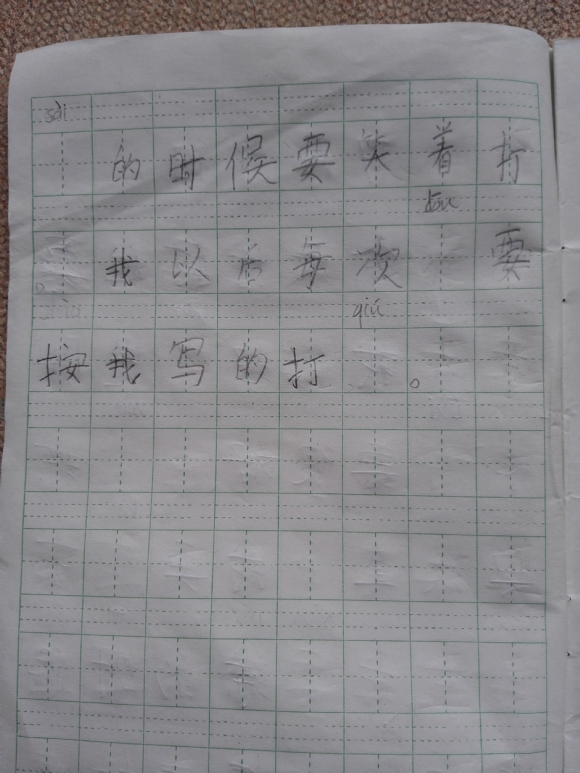 sài
的时候要笑着打
dōu
。我以后每次 要
qiú
按我写的打 。